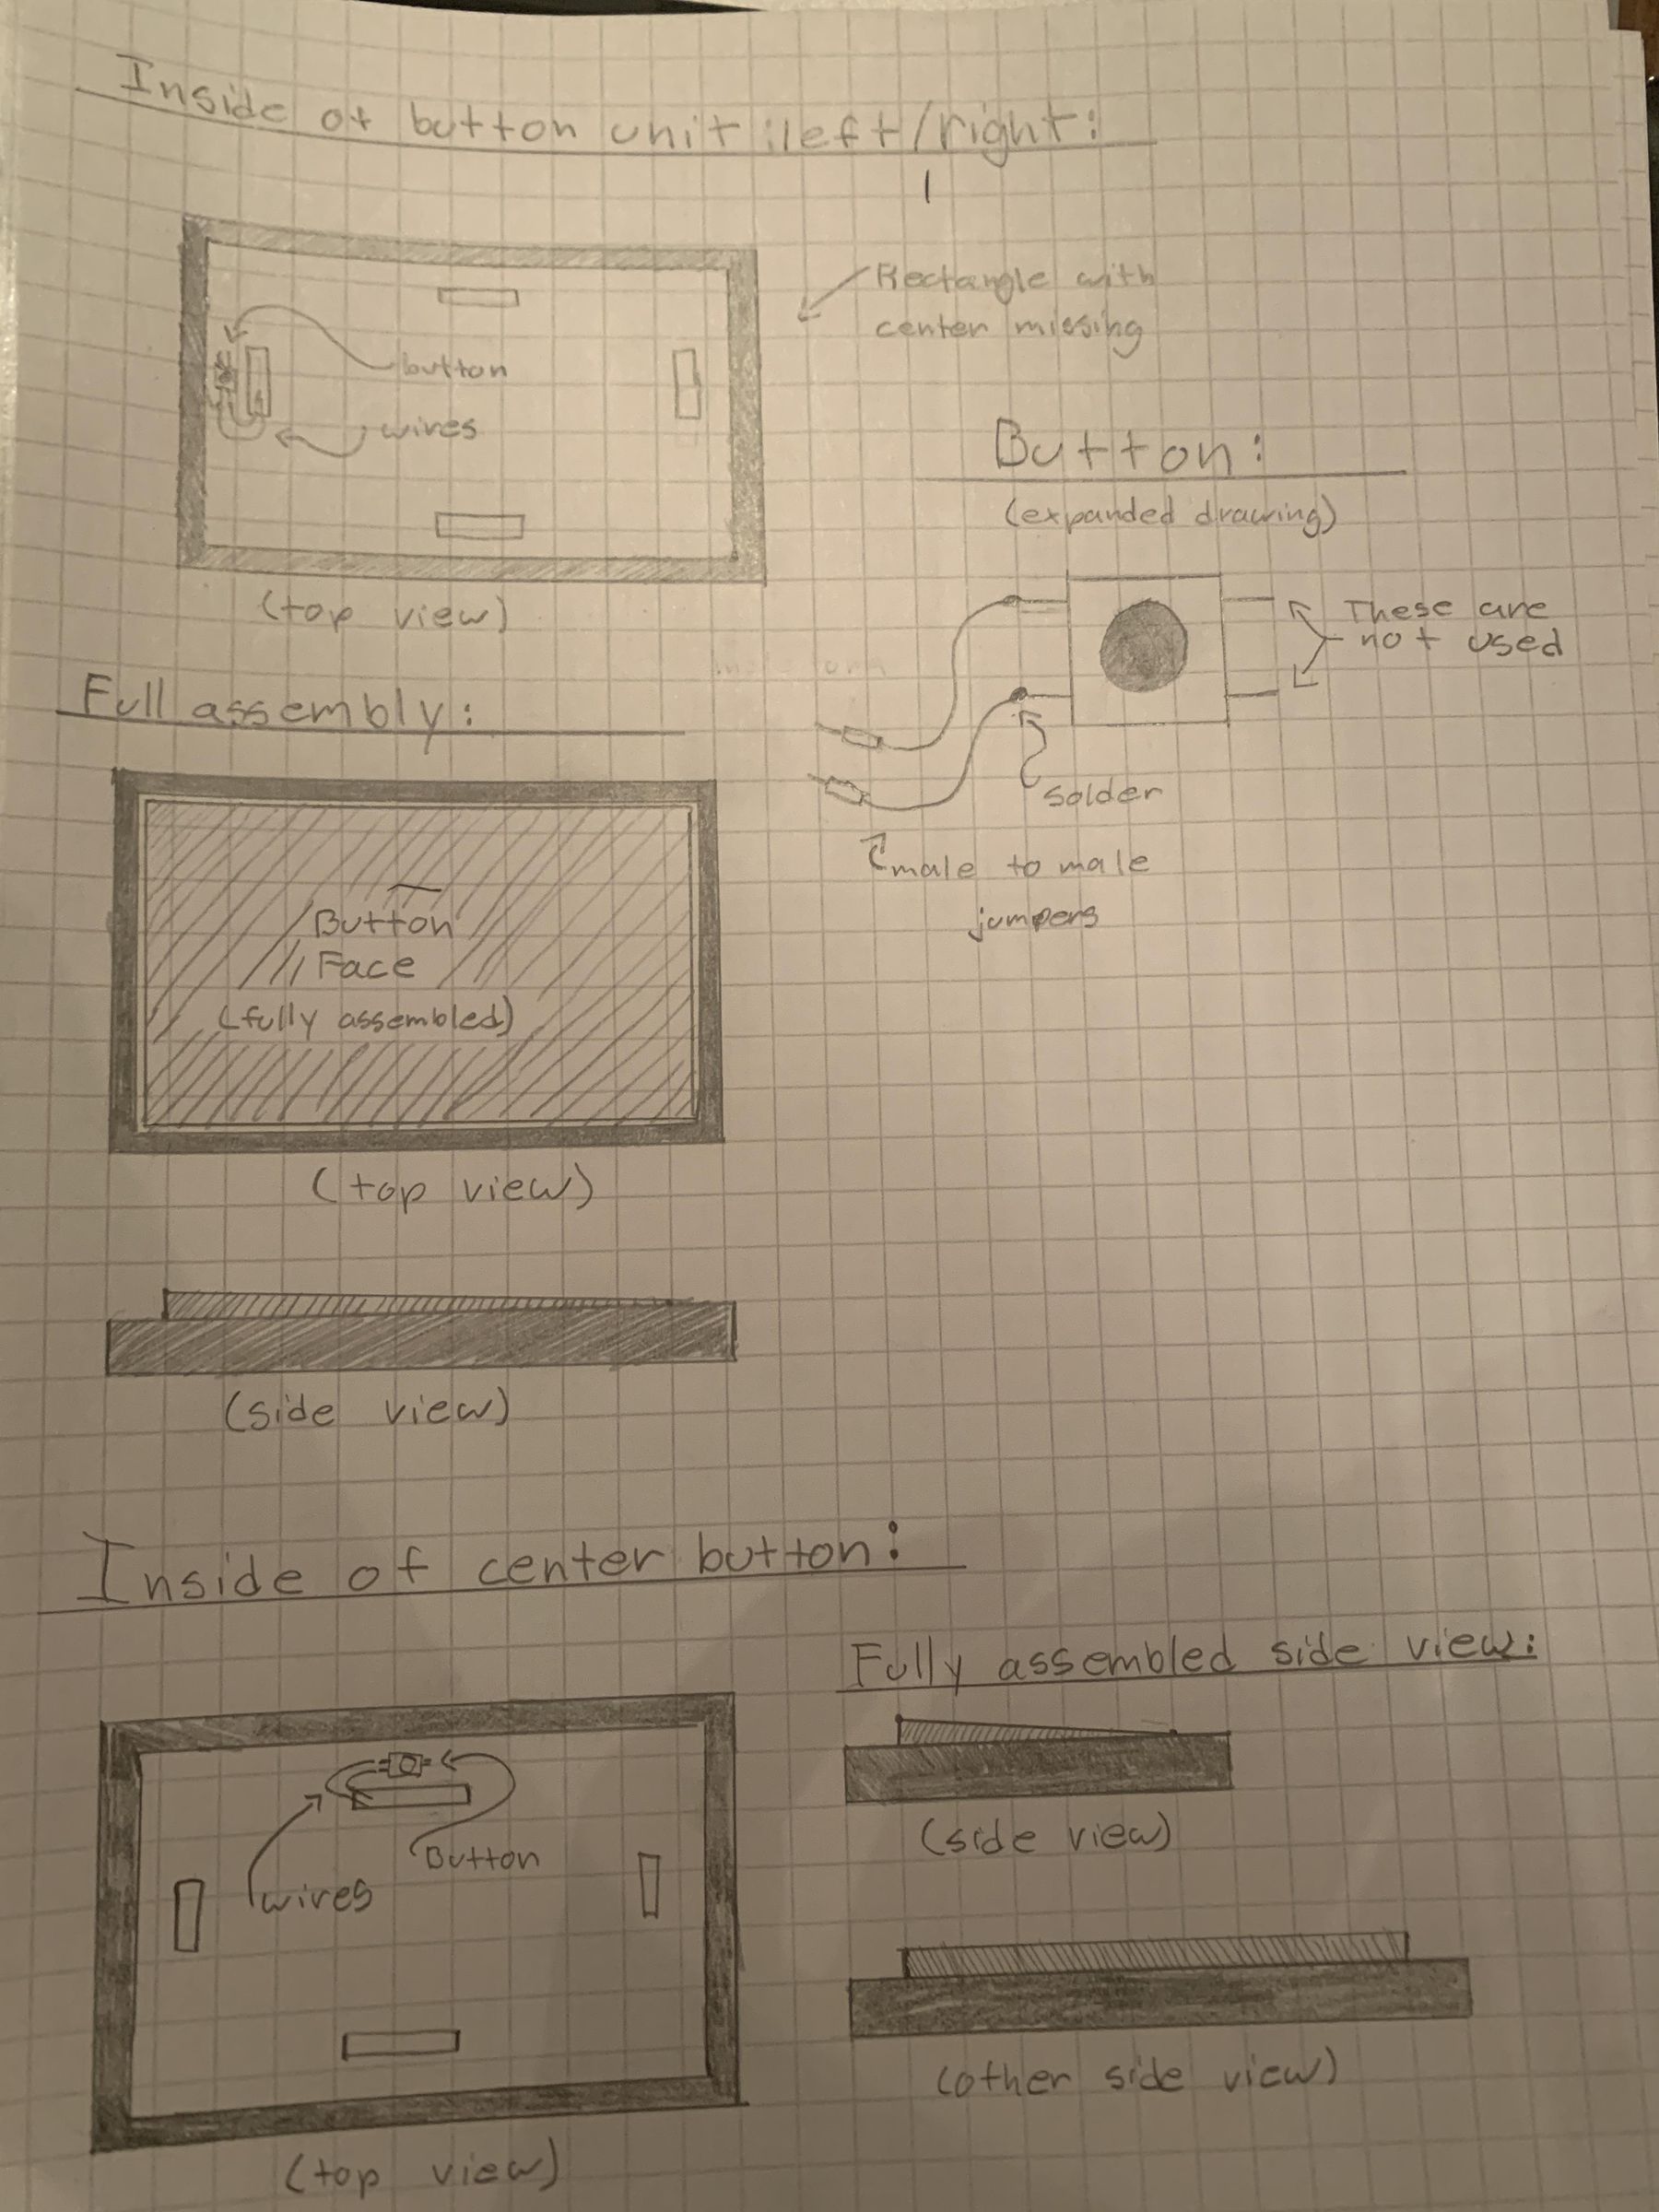 Inside of button unit: left/right:
Rectangle with
center missing
button
wires
(top view)
Button:
(expanded drawing)
These are
not used
solder
male to male
jumpers
Full assembly:
Button
Face
(fully assembled)
(top view)
(side view)
Inside of center button:
Button
wires
(top view)
Fully assembled side view:
(side view)
(other side view)